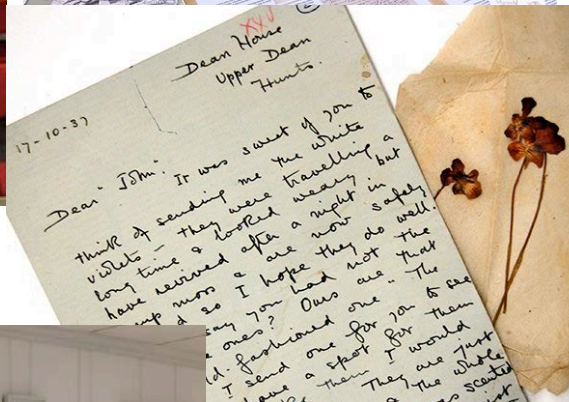 Dean House
Upper Dean
Hunts.
17-10-37
Dear "John". It was sweet of you to
think of sending me the white
violets - they were travelling a
long time & looked weary but
have revived after a night in
moss & are now safely
so I hope they do well.
say you had not the
ones? Ours are that
fashioned one "The
I send one for you to see
have a spot for them
them I would
They are just
& the whole
scented